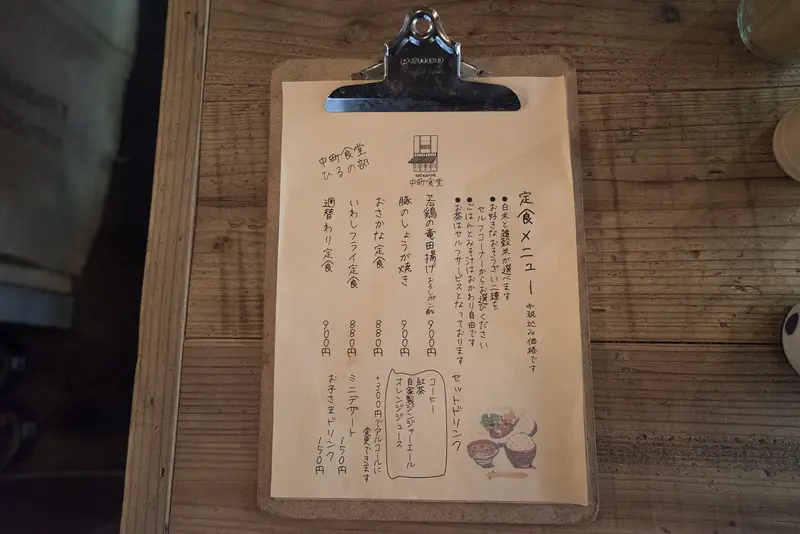 PEACE
中町食堂
中町食堂
ひるの部
定食メニュー ※税込み価格です
●白米と雑穀米が選べます
●お好きなおそうざい二種を
セルフコーナーからお選びください
●ごはんとみそ汁はおかわり自由です
●お茶はセルフサービスとなっております
若鶏の竜田揚げ おろしポン酢 900円
豚のしょうが焼き 900円
おさかな定食 880円
いわしフライ定食 880円
週替わり定食 900円
セットドリンク
コーヒー
紅茶
自家製ジンジャーエール
オレンジジュース
+300円でアルコールに
変更できます
ミニデザート 150円
お子さまドリンク 150円